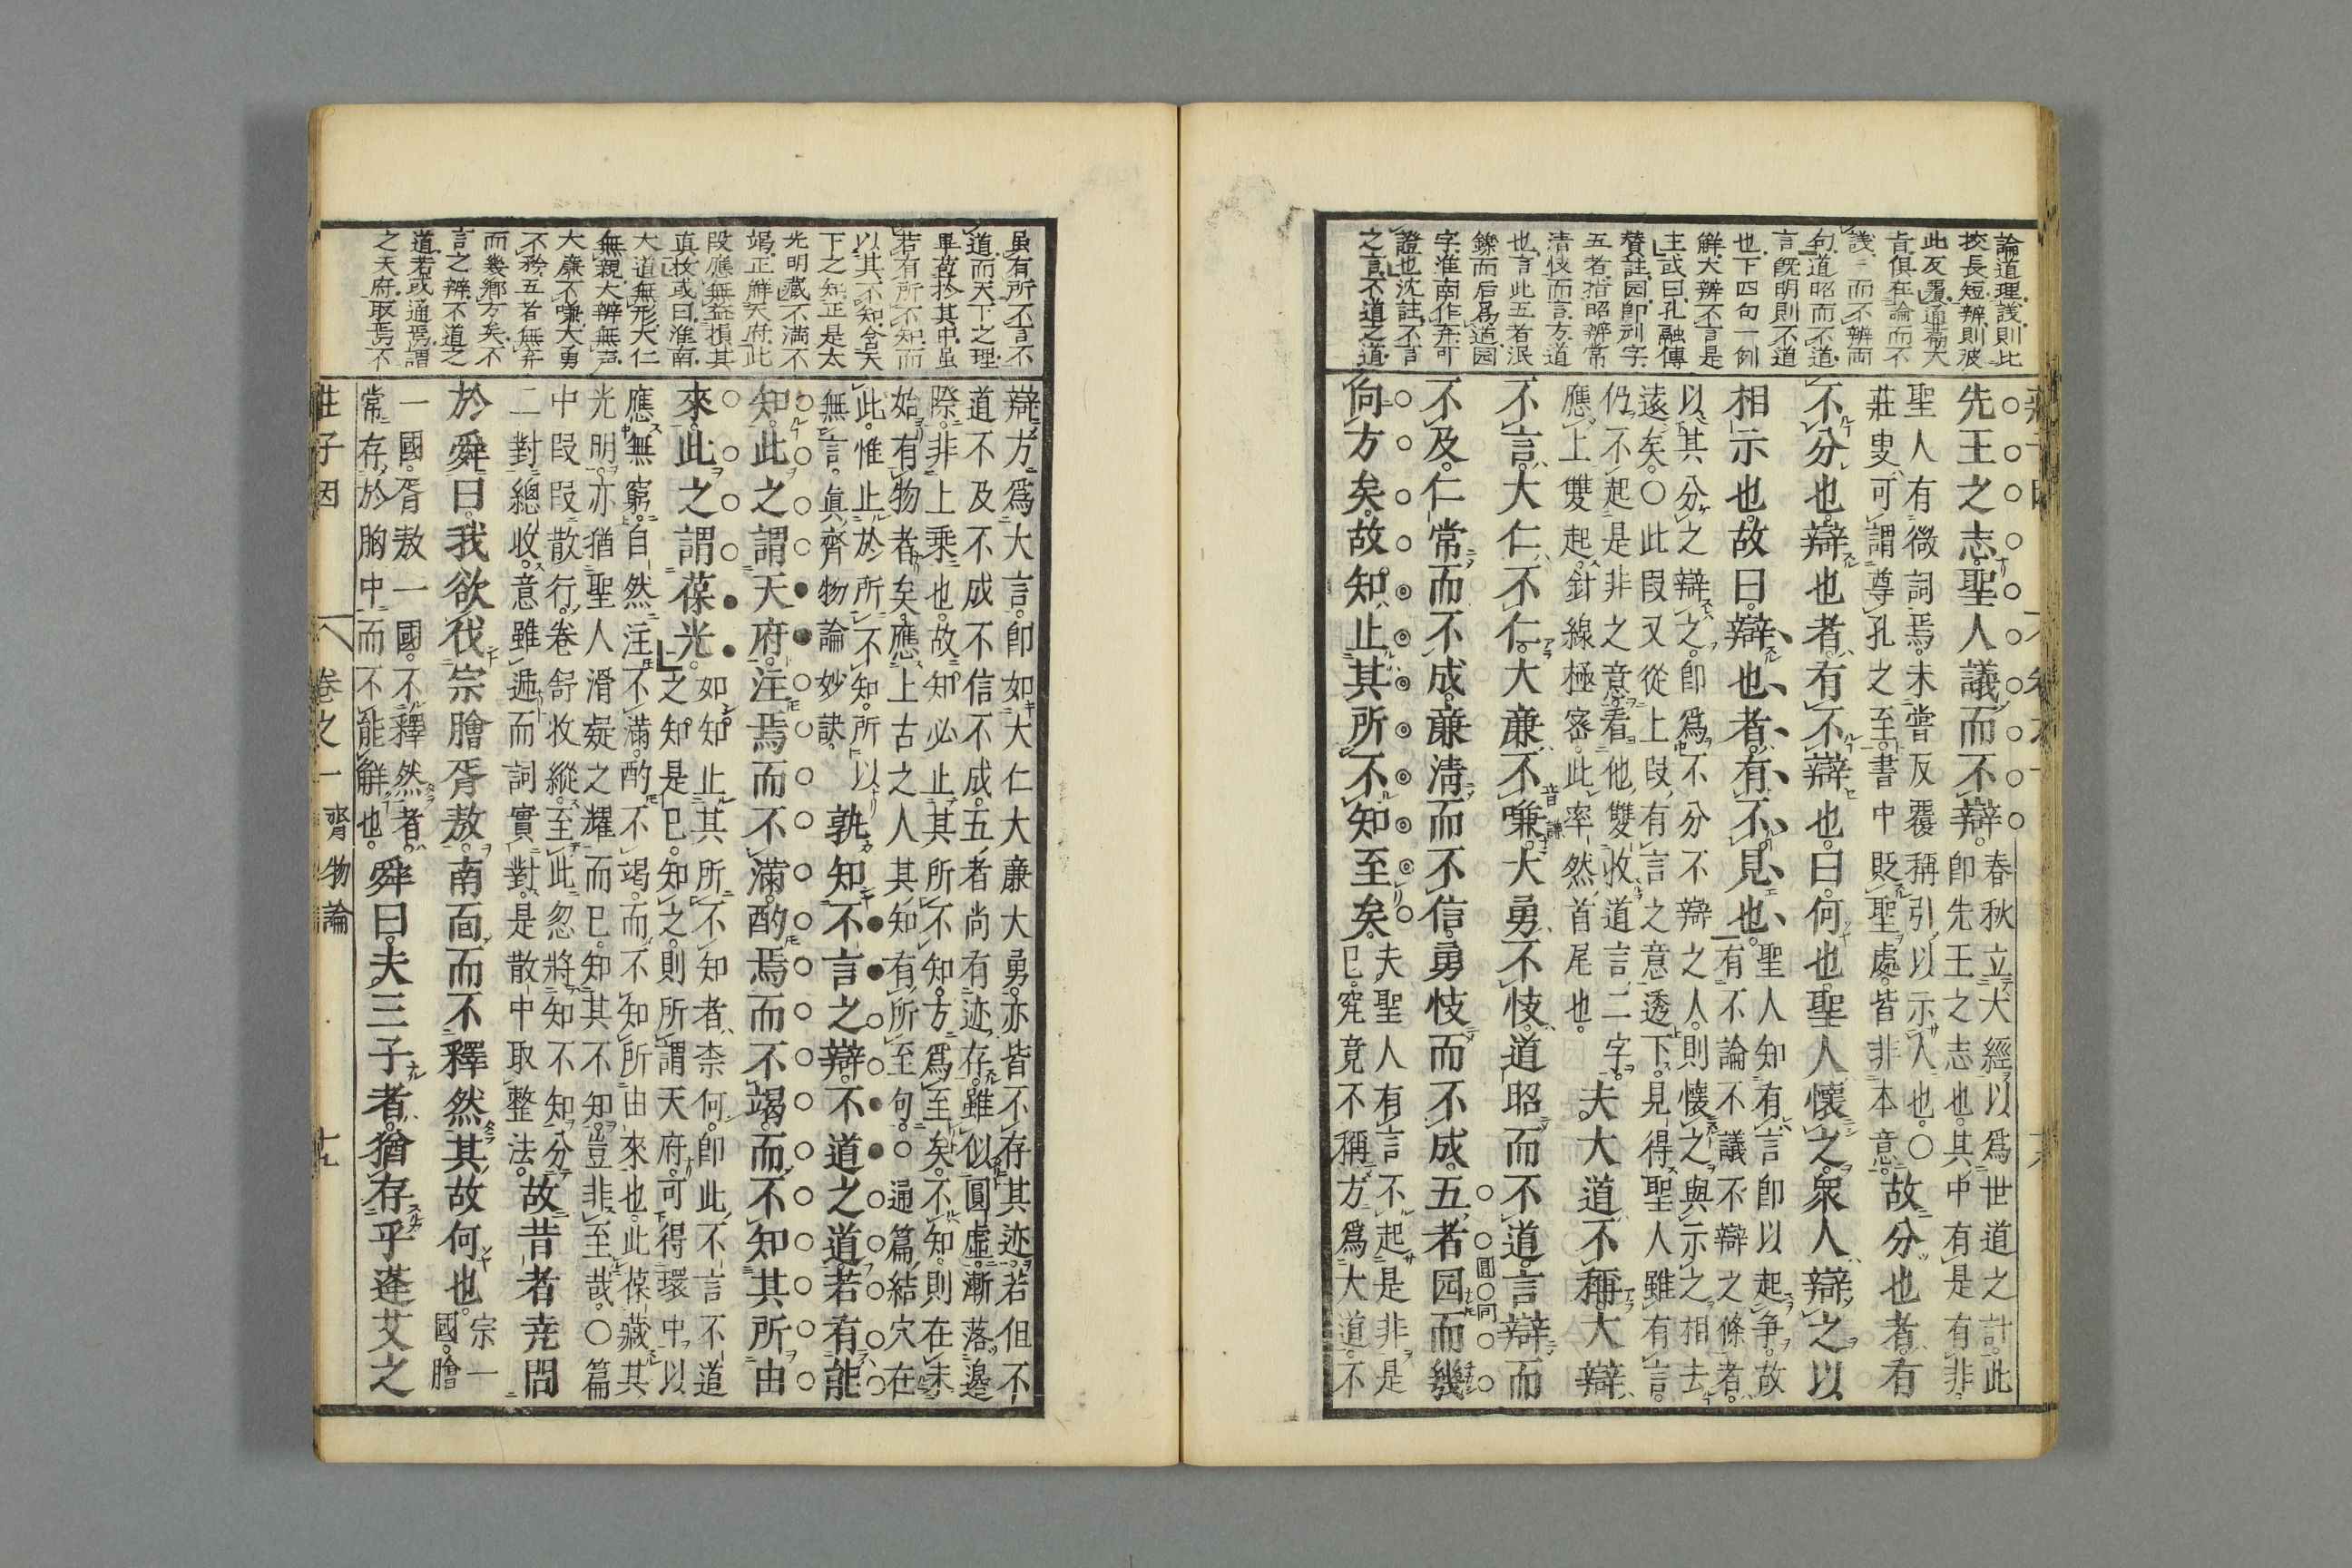 論道理議則比
挍長短辨則彼
此反覆通篇大
肯俱在論而不
議〻而不辨両
句道昭而不道
言既明則不道
也下四句一例
解大辨不言是
主或曰孔融傳
賛註园即刓字
五者指昭辨常
清忮而言方道
也言此五者泯
鑠而后爲道园
字淮南作弃可
證也沈註不言
之言不道之道
先王之志。聖人議而不辯。
春秋立大經以爲世道之計。此
即先王之志也。其中有是有非。
聖人有微詞焉。未嘗反覆稱引以示人也。○
莊叟可謂尊孔之至。書中貶聖處。皆非本意。
故分也者。有
不分也。辯也者。有不辯也。曰。何也。聖人懷之。衆人辯之。以
相示也。故曰。辯也者。有不見也。
聖人知有言即以起爭。故
有不論不議不辯之條者。
以其分之辯之。即爲不分不辯之人。則懷之與示之相去
遠矣。○此叚又從上叚有言之意透下。見得聖人雖有言。
仍不起是非之意。看他雙收道言二字。
應上雙起。針線極密。此率然首尾也。
夫大道不稱。大辯
不言。大仁不仁。大亷不嗛。大勇不忮。道昭而不道。言辯而
不及。仁常而不成。亷清而不信。勇忮而不成。五者园而幾
圓○同
向方矣。故知止其所不知。至矣。
夫聖人有言不起是非是
已。究竟不稱方爲大道。不
虽有所不言不
道而天下之理
畢萃於其中虽
若有所不知而
以其不知含天
下之知正是太
光明藏不満不
竭正解天府此
段應無益損其
真收或曰淮南
大道無形大仁
無親大辨無声
大廉不嗛大勇
不矜五者無弃
而幾鄉方矣不
言之辨不道之
道若或通焉謂
之天府取焉不
辯方爲大言。即如大仁大亷大勇。亦皆不存其迹。若但不
道不及不成不信不成。五者尚有迹存。雖似圓虛。漸落邊
際。非上乘也。故知必止其所不知。方爲至矣。不知則在未
始有物者矣。應上古之人其知有所至句。○通篇結穴在
此。惟止於所不知。所以
無言。眞齊物論妙訣。
孰知不言之辯。不道之道。若有能
知。此之謂天府。注焉而不滿。酌焉而不竭。而不知其所由
來。此之謂葆光。
如知止其所不知者柰何。即此不言不道
之知是已。知之。則所謂天府。可得環中以
應無窮。自然注不滿。酌不竭。而不知所由來也。此葆藏其
光明。亦猶聖人滑疑之耀而已。知其不知。豈非至哉。○篇
中叚叚散行。卷舒收縱。至此忽將知不知分
二對總收。意雖遞而詞實對。是散中取整法。
故昔者尭問
於舜曰。我欲伐宗膾胥敖。南面而不釋然。其故何也。
宗一
國。膾
一國。胥敖一國。不釋然者。
常存於胸中而不能觧也。
舜曰。夫三子者。猶存乎蓬艾之
莊子因 卷之一 齊物論 十九